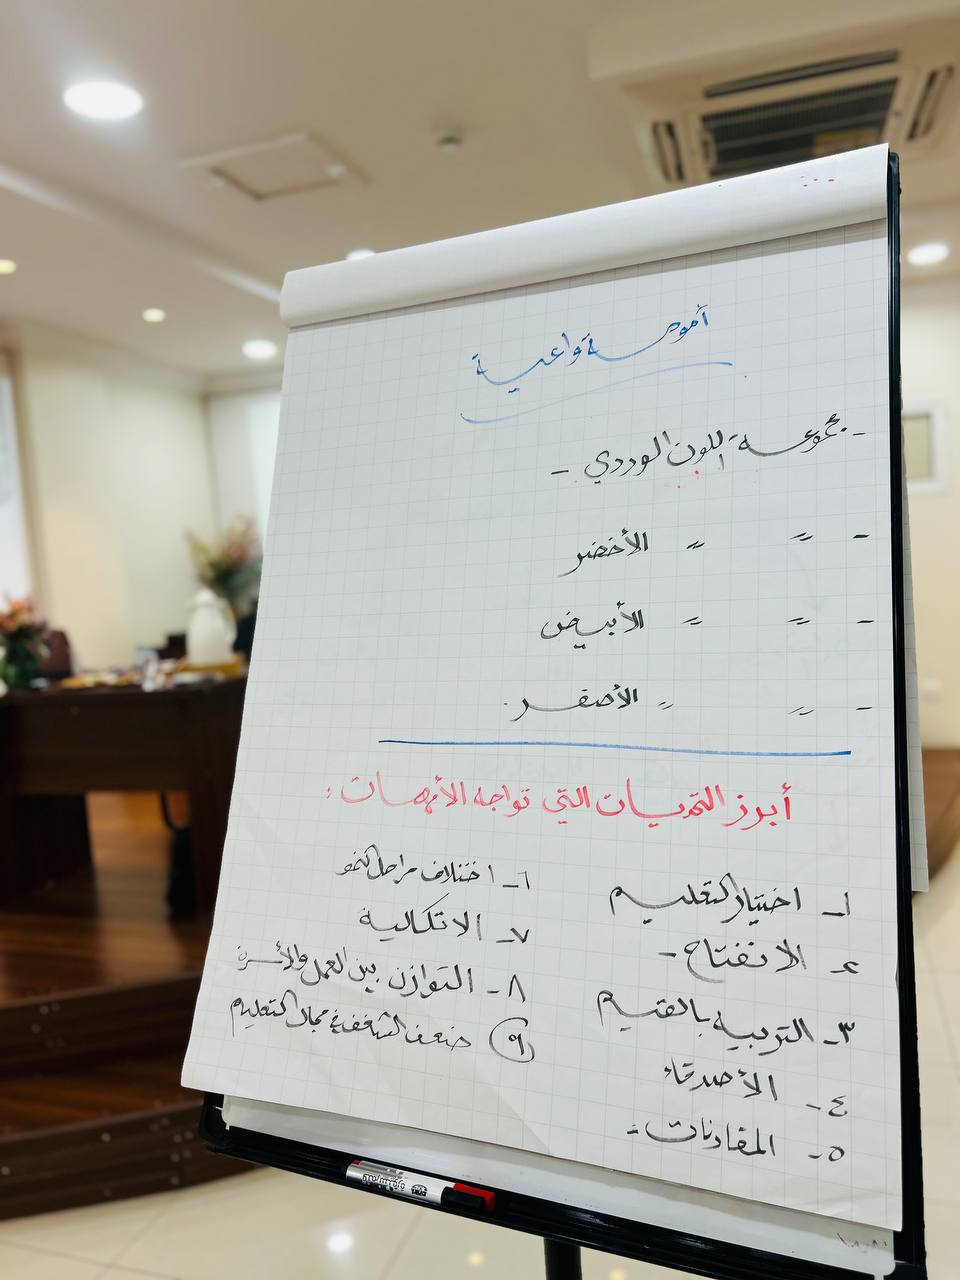 أمومة واعية
- مجموعة اللون الوردي -
- 〃 〃 الأخضر
- 〃 〃 الأبيض
- 〃 〃 الأصفر
أبرز التحديات التي تواجه الأمهات :
١- اختيار التعليم
٢- الانفتاح -
٣- التربية بالقيم
٤- الأصدقاء
٥- المقارنات
٦- اختلاف مراحل النمو
٧- الاتكالية
٨- التوازن بين العمل والأسرة
٩ ضعف الشغف في مجال التعليم